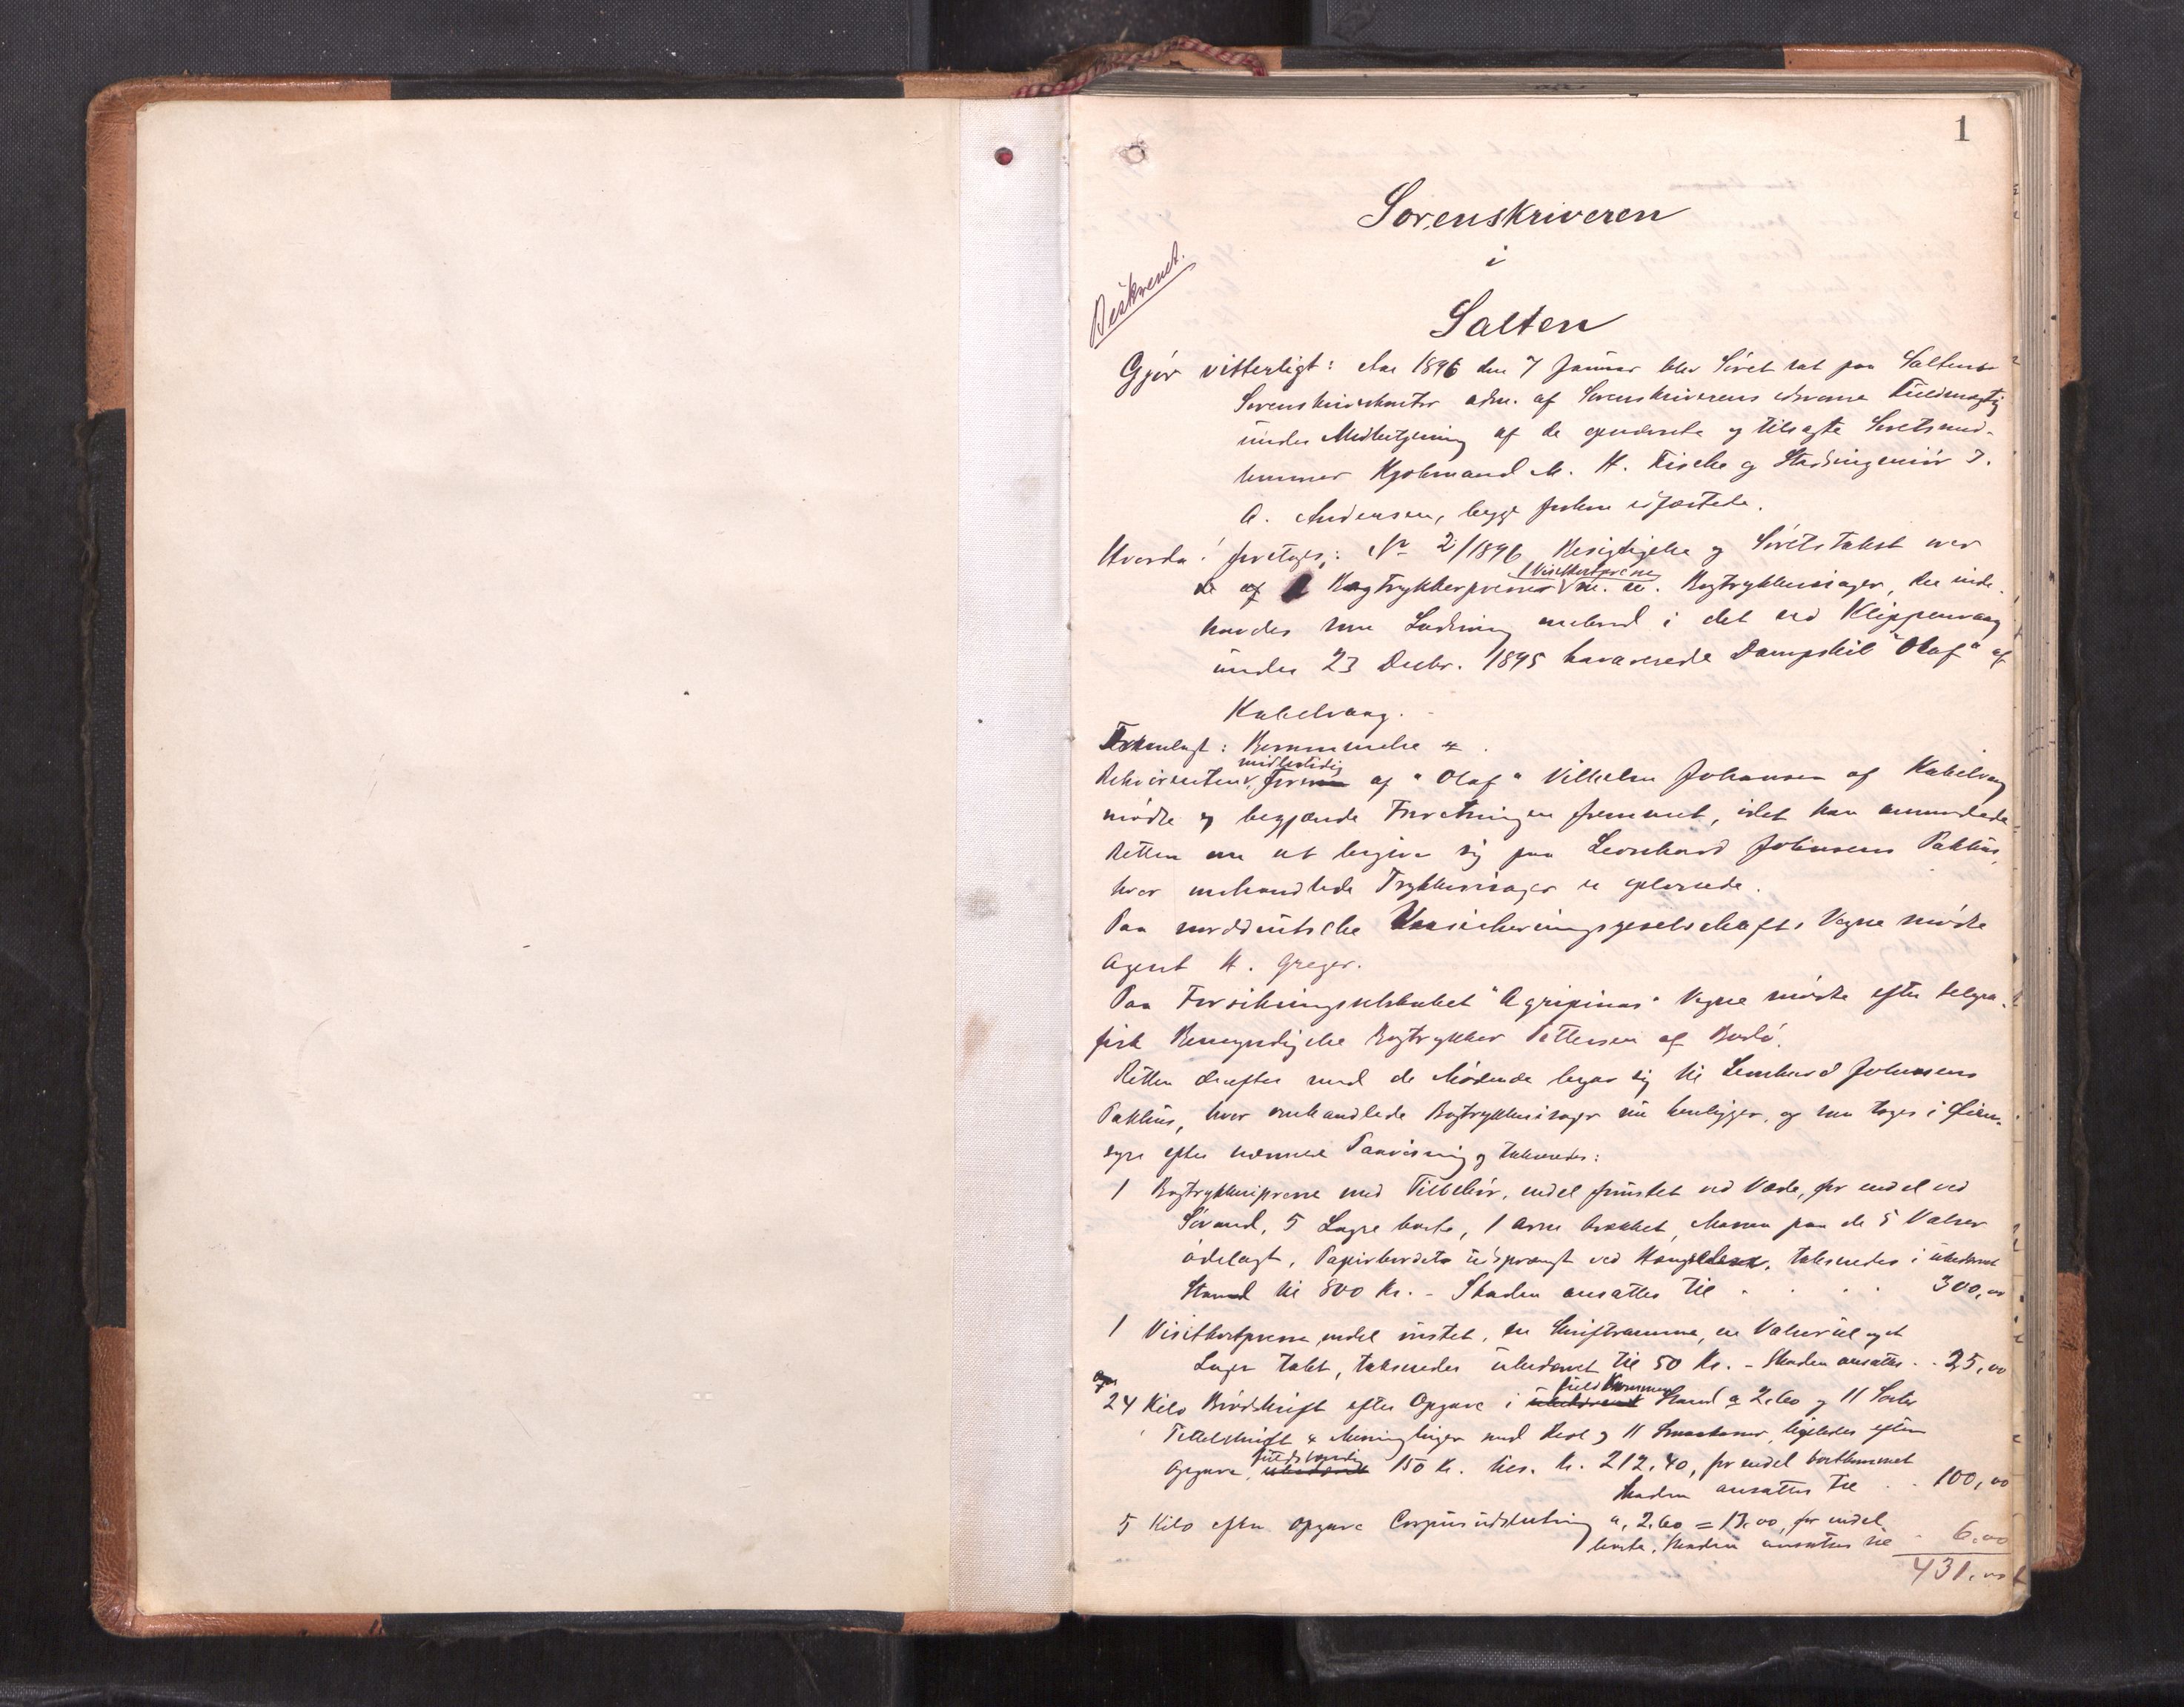 1
Sorenskriveren
i
Salten
Beskrevet.
Gjør vitterligt: Aar 1896 den 7 Januar blev Søret sat paa Saltens
Sorenskriverkontor adm. af Sorenskriverens edsvorne Fuldmægtig
under Medbetjening af de opnævnte og tilsagte Soretsmed-
lemmer Kjøbmand M. H. Fische og Stadsingeniør J.
A. Andersen, begge forhen edfæstede.
Hvorda! foretoges: No 2/1896 Besigtigelse og Søretstakst over
1 Visitkortpresse
de af Bogtrykkerpresser m. m. Bogtrykkerisager, der inde-
havdes som Ladning ombord i det ved Klippenvaag
under 23 Decbr. 1895 havarerede Dampskib "Olaf" af
Kabelvaag.
Fremlagt: Berammelse
midlertidig
Rekvirenten, Fører af "Olaf" Vilhelm Johansen af Kabelvaag
mødte og begjærede Forretningen fremmet, idet han anmodede
Retten om at begive sig paa Leonhard Johnsens Pakhus,
hvor omhandlede Trykkerisager er oplossede.
Paa norddeutsche Versicherungsgeselschafts Vegne mødte
Agent H. Greger.
Paa Forsikringsselskabet "Agripinas" Vegne mødte efter telegra-
fisk Bemyndigelse Bogtrykker Pettersen af Bodø.
Retten derefter med de Mødende begav sig til Leonhard Johnsens
Pakhus, hvor omhandlede Bogtrykkerisager nu henligger, og som toges i Øien-
syn efter nævnte Paavisning og takseredes:
1 Bogtrykkeripresse med Tilbehør, endel frustet ved Væde, for endel ved
Søvand, 5 Lagre borte, 1 Arm brækket, Massen paa de 5 Valser
ødelagt, Papirbordets udsprængt ved takseredes i ubeskadiget
Stand til 800 Kr. - Skaden ansattes til . . . . 300,00
1 Visitkortpresse endel rustet, en Skriftramme, en Valse og et
Lager tabt, takseredes ubeskadiget til 50 Kr. - Skaden ansattes . . 25,00
fuldkommen
24 Kilo Brødskrift efter Opgave i Stand a 2.60 og 11 Sorter
Tittelskrift & Messinglinjer med Reol og 11 Smaakasser, ligeledes efter
fuldstændig
Opgave, 150 Kr. tils. Kr. 212.40, for endel bortkommet
Skaden ansattes til . . 100,00
5 Kilo efter Opgave Corpusudslutning a, 2.60 = 13.00, for endel
borte. Skaden ansattes til . 6.00
431.00